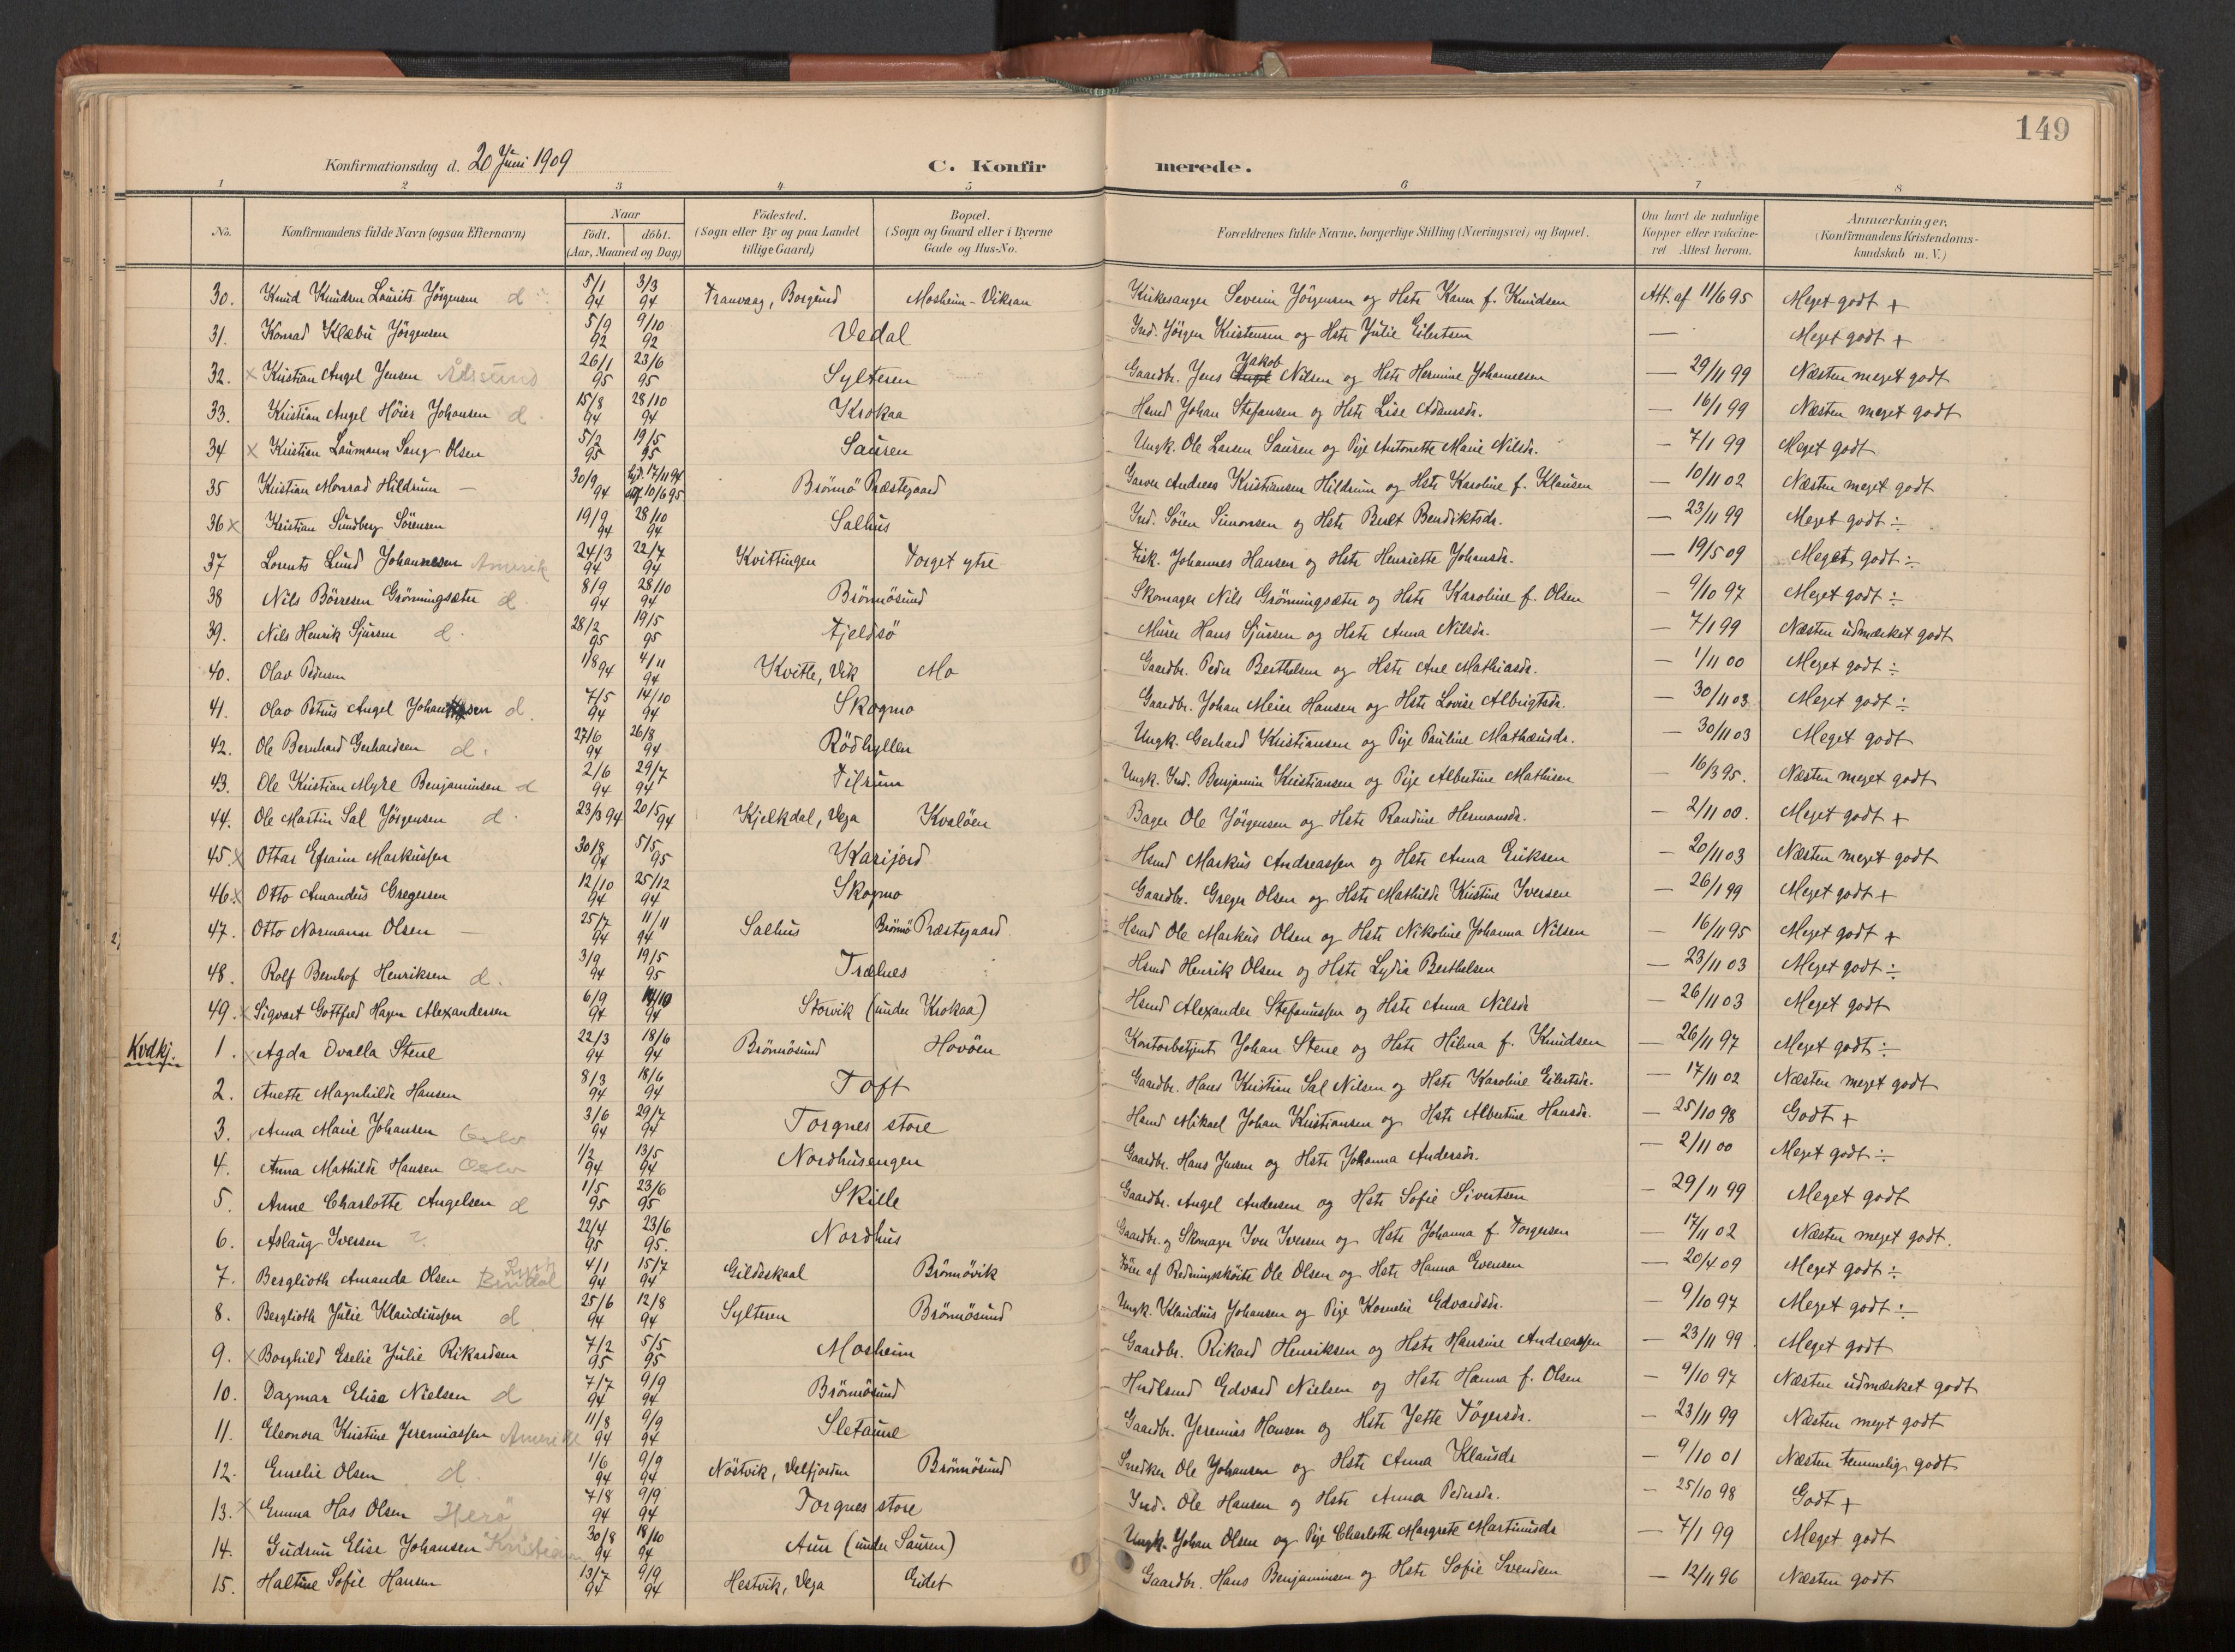 149
Konfirmationsdag d. 20 Juni 1909 C. Konfirmerede.
1 2 3 4 5 6 7 8
No. Konfirmandens fulde Navn (ogsaa Efternavn) Naar født. døbt. (Aar, Maaned og Dag) Födested. (Sogn eller By og paa Landet tillige Gaard) Bopæl. (Sogn og Gaard eller i Byerne Gade og Hus-No. Forældrenes fulde Navne, borgerlige Stilling (Næringsvei) og Bopæl. Om havt de naturlige Kopper eller vakcineret Attest herom. Anmærkninger. (Konfirmandens Kristendomskundskab m. V.)
30. Knud Knudsen Laurits Jörgensen d 5/1 94 3/3 94 Tranvaag, Borgund Mosheim-Vikran Kirkesanger Severin Jörgensen og Hstr Karen f. Knudsen Att. af 11/6 95 Meget godt +
31. Konrad Klæbu Jörgensen 5/9 92 9/10 92 Vedal Ind. Jörgen Kristensen og Hstr Julie Eilertsen — Meget godt +
32. x Kristian Angel Jensen 26/1 95 23/6 95 Sylteren Gaardbr. Jens Jakob Nilsen og Hstr Hermine Johannessen — 29/11 99 Næsten meget godt
33. Kristian Angel Höier Johansen d 15/8 94 28/10 94 Krokaa Hsmd Johan Stefansen og Hstr Lise Adamsdr. — 16/1 99 Næsten meget godt
34 x Kristian Laumann Sang Olsen 5/2 95 19/5 95 Sausen Ungk. Ole Larsen Sausen og Pige Antonette Marie Nilsdr. — 7/1 99 Meget godt
35 Kristian Monrad Hildrum — 30/9 94 Hjd. 17/11 94 Stf. 10/6 95 Brönnö Præstegaard Garver Andreas Kristiansen Hildrum og Hstr Karoline f. Klausen — 10/11 02 Næsten meget godt
36 x Kristian Sundberg Sörensen 19/9 94 28/10 94 Salhus Ind. Sören Simonsen og Hstr Berit Bendiktsdr. — 23/11 99 Meget godt ÷
37 Lorents Lund Johannesen Amerik 24/3 94 22/7 94 Kvittingen Torget ytre Fisk. Johannes Hansen og Hstr Henriette Johansdr. — 19/5 09 Meget godt ÷
38 Nils Börresen Grönningsæter d 8/9 94 28/10 94 Brönnösund Skomager Nils Grönningsæter og Hstr Karoline f. Olsen — 9/10 97 Meget godt ÷
39. Nils Henrik Sjursen d. 28/2 95 19/5 95 Tjeldsö Murer Hans Sjursen og Hstr Anna Nilsdr. — 7/1 99 Næsten udmærket godt
40. Olav Pedersen 1/8 94 4/11 94 Kvitle, Vik Mo Gaardbr. Peder Berthelsen og Hstr Ane Mathiasdr. — 1/11 00 Meget godt ÷
41. Olav Petrus Angel Johansen d. 7/5 94 14/10 94 Skogmo Gaardbr. Johan Meier Hansen og Hstr Lovise Albrigtsdr. — 30/11 03 Meget godt ÷
42. Ole Bernhard Gerhardsen d. 27/6 94 26/8 94 Rödhyllen Ungk. Gerhard Kristiansen og Pige Pauline Mathæusdr. — 30/11 03 Meget godt
43. Ole Kristian Myhre Benjaminsen d 2/6 94 29/7 94 Tilrum Ungk. Ind. Benjamin Kristiansen og Pige Albertine Mathisen — 16/3 95. Næsten meget godt
44. Ole Martin Sal Jörgensen d. 23/3 94 20/5 94 Kjelkdal, Vega Kvalöen Bager Ole Jörgensen og Hstr Randine Hermansdr. — 2/11 00. Meget godt +
45. x Ottar Efraim Markussen 30/8 94 5/5 95 Karijord Hsmd Markus Andreassen og Hstr Anna Eriksen — 20/11 03 Næsten meget godt
46 x Otto Amandus Gregersen 12/10 94 25/12 94 Skogmo Gaardbr. Greger Olsen og Hstr Mathilde Kristine Iversen — 26/1 99 Meget godt +
47. Otto Normann Olsen — 25/7 94 11/11 94 Salhus Brönnö Præstegaard Hsmd Ole Markus Olsen og Hstr Nikoline Johanna Nilsen — 16/11 95 Meget godt +
48. Rolf Bernhof Henriksen d. 3/9 94 19/5 95 Trælnes Hsmd Henrik Olsen og Hstr Lydia Berthelsen — 23/11 03 Meget godt ÷
49. x Sigvart Gottfred Hagen Alexandersen 6/9 94 14/10 94 Storvik (under Krokaa) Hsmd Alexander Stefanussen og Hstr Anna Nilsdr — 26/11 03 Meget godt
Kvdkj. 1. x Agda Ovalla Stene 22/3 94 18/6 94 Brönnösund Havöen Kontorbetjent Johan Stene og Hstr Hilma f. Knudsen — 26/11 97 Meget godt ÷
2. Anette Magnhilde Hansen 8/3 94 18/6 94 Toft Gaardbr. Hans Kristian Sal Nilsen og Hstr Karoline Eilertsdr. — 17/11 02 Næsten meget godt
3. Anna Marie Johansen Oslo 3/6 94 29/7 94 Torgnes store Hsmd Mikael Johan Kristiansen og Hstr Albertine Hansdr. — 25/10 98 Godt +
4. Anna Mathilde Hansen Oslo 1/2 94 13/5 94 Nordhusengen Gaardbr. Hans Jensen og Hstr Johanna Andersdr. — 2/11 00 Meget godt ÷
5. Anne Charlotte Angelsen d 1/5 95 23/6 95 Skille Gaardbr. Angel Andersen og Hstr Sofie Sivertsen — 29/11 99 Meget godt
6. Aslaug Iversen ? 22/4 95 23/6 95. Nordhus Gaardbr. og Skomager Iver Iversen og Hstr Johanna f. Torgersen — 17/11 02 Næsten meget.
7. Berglioth Amanda Olsen Bindal 4/1 94 15/7 94 Gildeskaal Brönnövik Förer af Redningsköite Ole Olsen og Hstr Hanna Evensen — 20/4 09 Meget godt ÷
8. Berglioth Julie Klaudiussen d. 25/6 94 12/8 94 Sylteren Brönnösund Ungk. Klaudius Johansen og Pige Kornelie Edvardsdr. — 9/10 97 Meget godt ÷
9. x Borghild Eselie Julie Rikardsen 7/2 95 5/5 95 Mosheim Gaardbr. Rikard Henriksen og Hstr Hansine Andreassen — 23/11 99 Meget godt
10. Dagmar Elisa Nielsen d 7/7 94 9/9 94 Brönnösund Hndlsmd Edvard Nielsen og Hstr Hanna f. Olsen — 9/10 97 Næsten udmærket godt
11. Eleonora Kristine Jeremiassen Amerika 11/8 94 9/9 94 Sletaune Gaardbr. Jeremias Hansen og Hstr Jette Tögersdr. — 23/11 99 Næsten meget godt
12. Emelie Olsen d. 1/6 94 9/9 94 Nöstvik, Velfjorden Brönnösund Snedker Ole Johansen og Hstr Anna Klausdr — 9/10 01 Næsten temmelig godt
13. x Emma Has Olsen Herö 7/8 94 9/9 94 Torgnes store Ind. Ole Hansen og Hstr Anna Pedersdr. — 25/10 98 Godt +
14. Gudrun Elise Johansen 30/8 94 18/10 94 Aun (under Sausen) Ungk. Johan Olsen og Pige Charlotte Margrete Martinusdr — 7/1 99 Meget godt
15. Haltine Sofie Hansen 13/7 94 9/9 94 Hestvik, Vega Eidet Gaardbr. Hans Benjaminsen og Hstr Sofie Svendsen — 12/11 96 Næsten godt